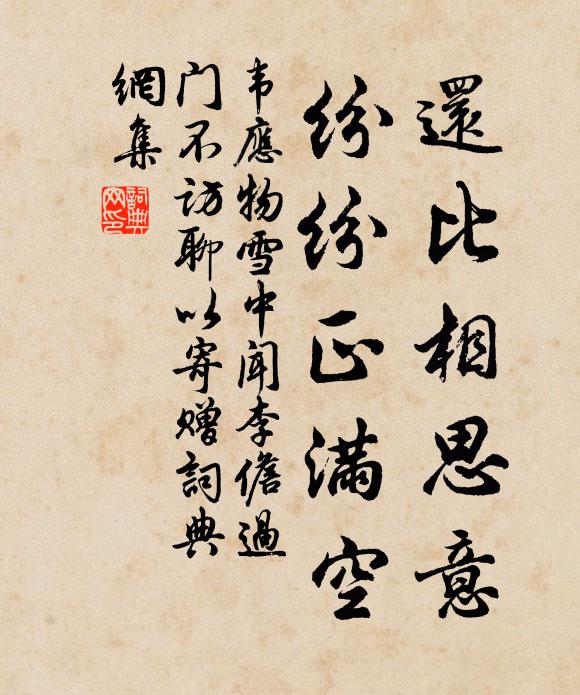 還比相思意
紛紛正滿空
韦應物雪中闻李儋過
门不访聊以寄赠詞典
網集
詞典
网印